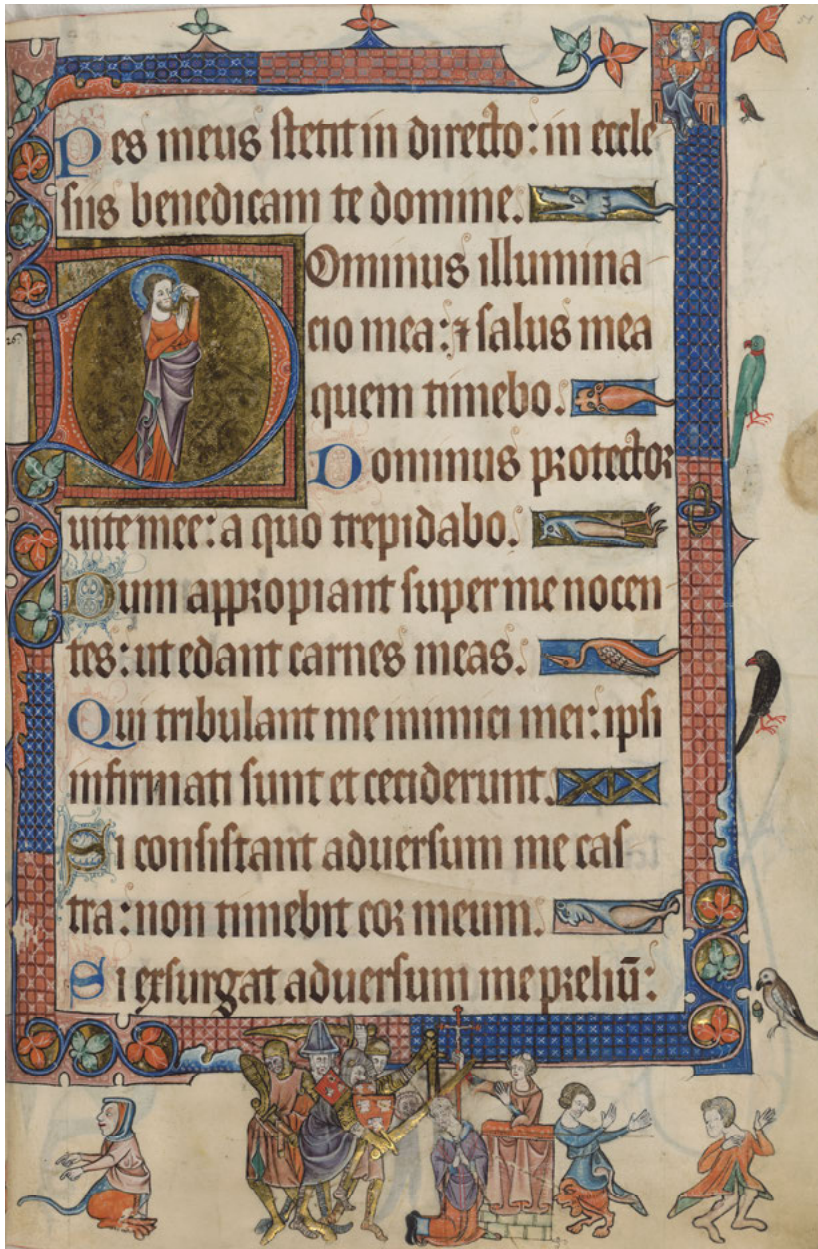 Pes meus stetit in directo: in eccle
siis benedicam te domine.
Dominus illumina
cio mea: ⁊ salus mea
quem timebo.
Dominus protector
uite mee: a quo trepidabo.
Dum appropiant super me nocen
tes: ut edant carnes meas.
Qui tribulant me inimici mei: ipsi
infirmati sunt et ceciderunt.
Si consistant aduersum me cas
tra: non timebit cor meum.
Si exsurgat aduersum me preliū:
51
26.